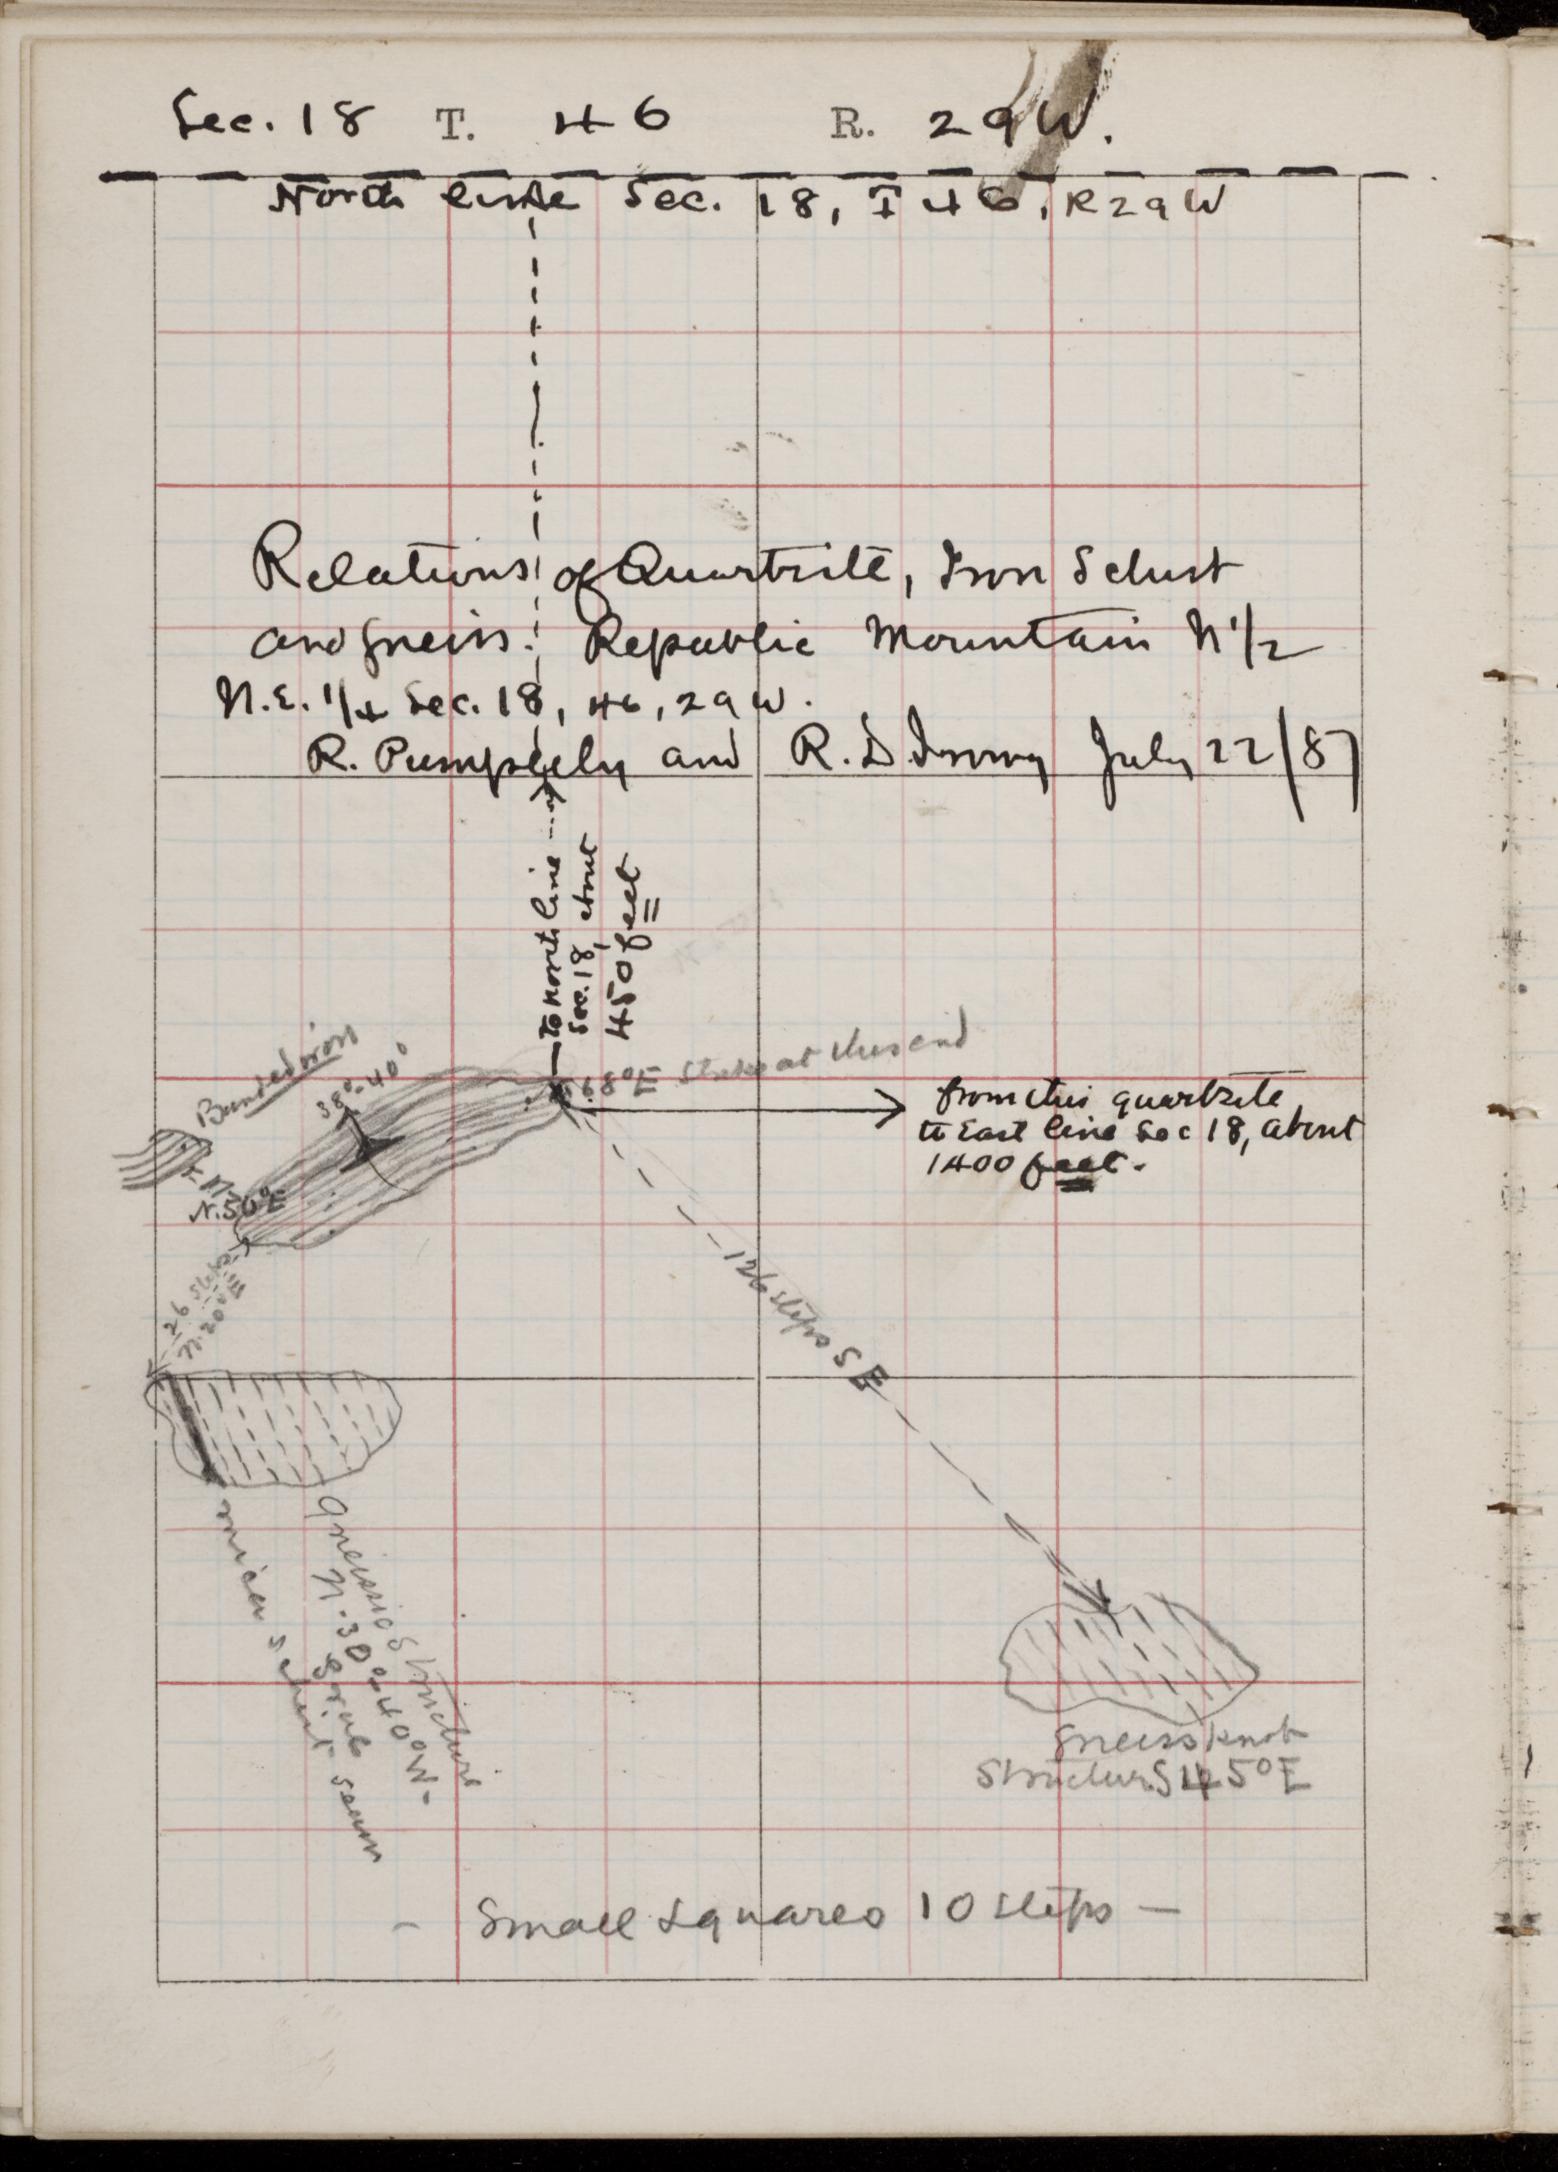 Sec. 18 T. 46 R. 29W.
North line Sec. 18, T 46, R29W
Relations of Quartzite, Iron Schist
and gneiss. Republic Mountain N 1/2
N.E. 1/4 Sec. 18, 46, 29W.
R. Pumpelly and R. D Irving July 22/87
to north line
Sec. 18, about
450 feet
68°E Strike at this end
Banded iron
38°-40°
from this quartzite
to East line Sec 18, about
1400 feet.
N. 50°E
26 steps
N. 20°E
126 steps SE
gneissic structure
N. 30° & 40° W.
mica schist seam
Gneiss knob
Structure S 45° E
- Small squares 10 steps -